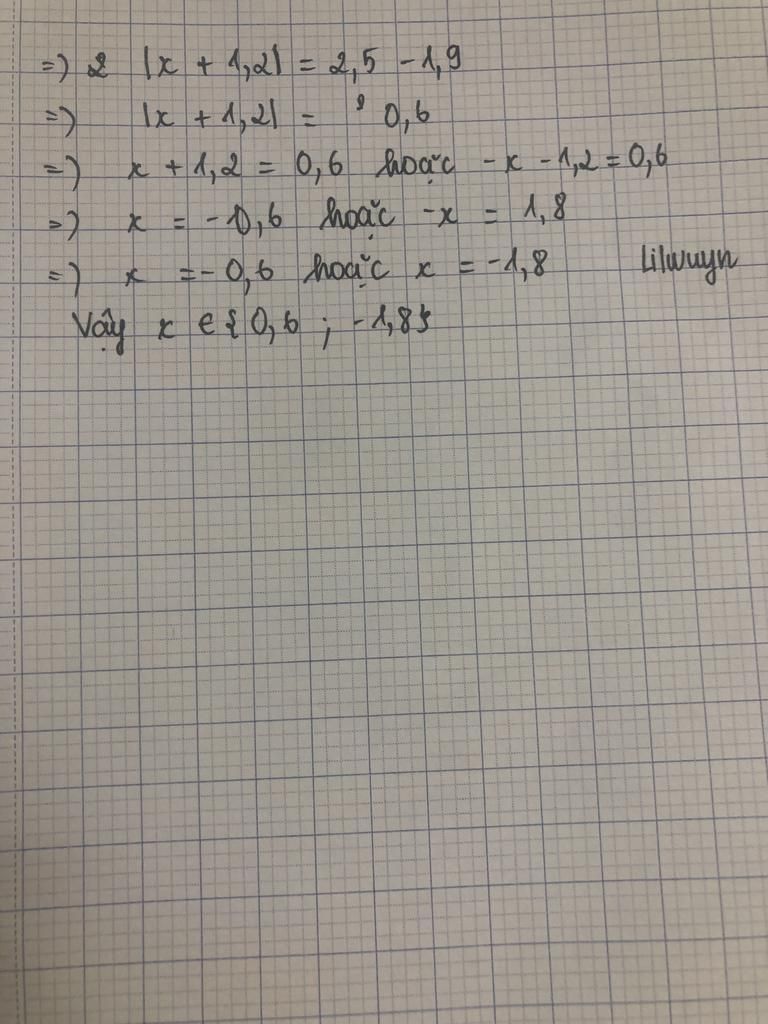 =) 2 |x + 1,2| = 2,5 - 1,9
=) |x + 1,2| = 0,6
=) x + 1,2 = 0,6 hoặc - x - 1,2 = 0,6
=) x = - 0,6 hoặc - x = 1,8
=) x = - 0,6 hoặc x = - 1,8 Lilwuyn
Vậy x ∈ { 0,6 ; - 1,8}